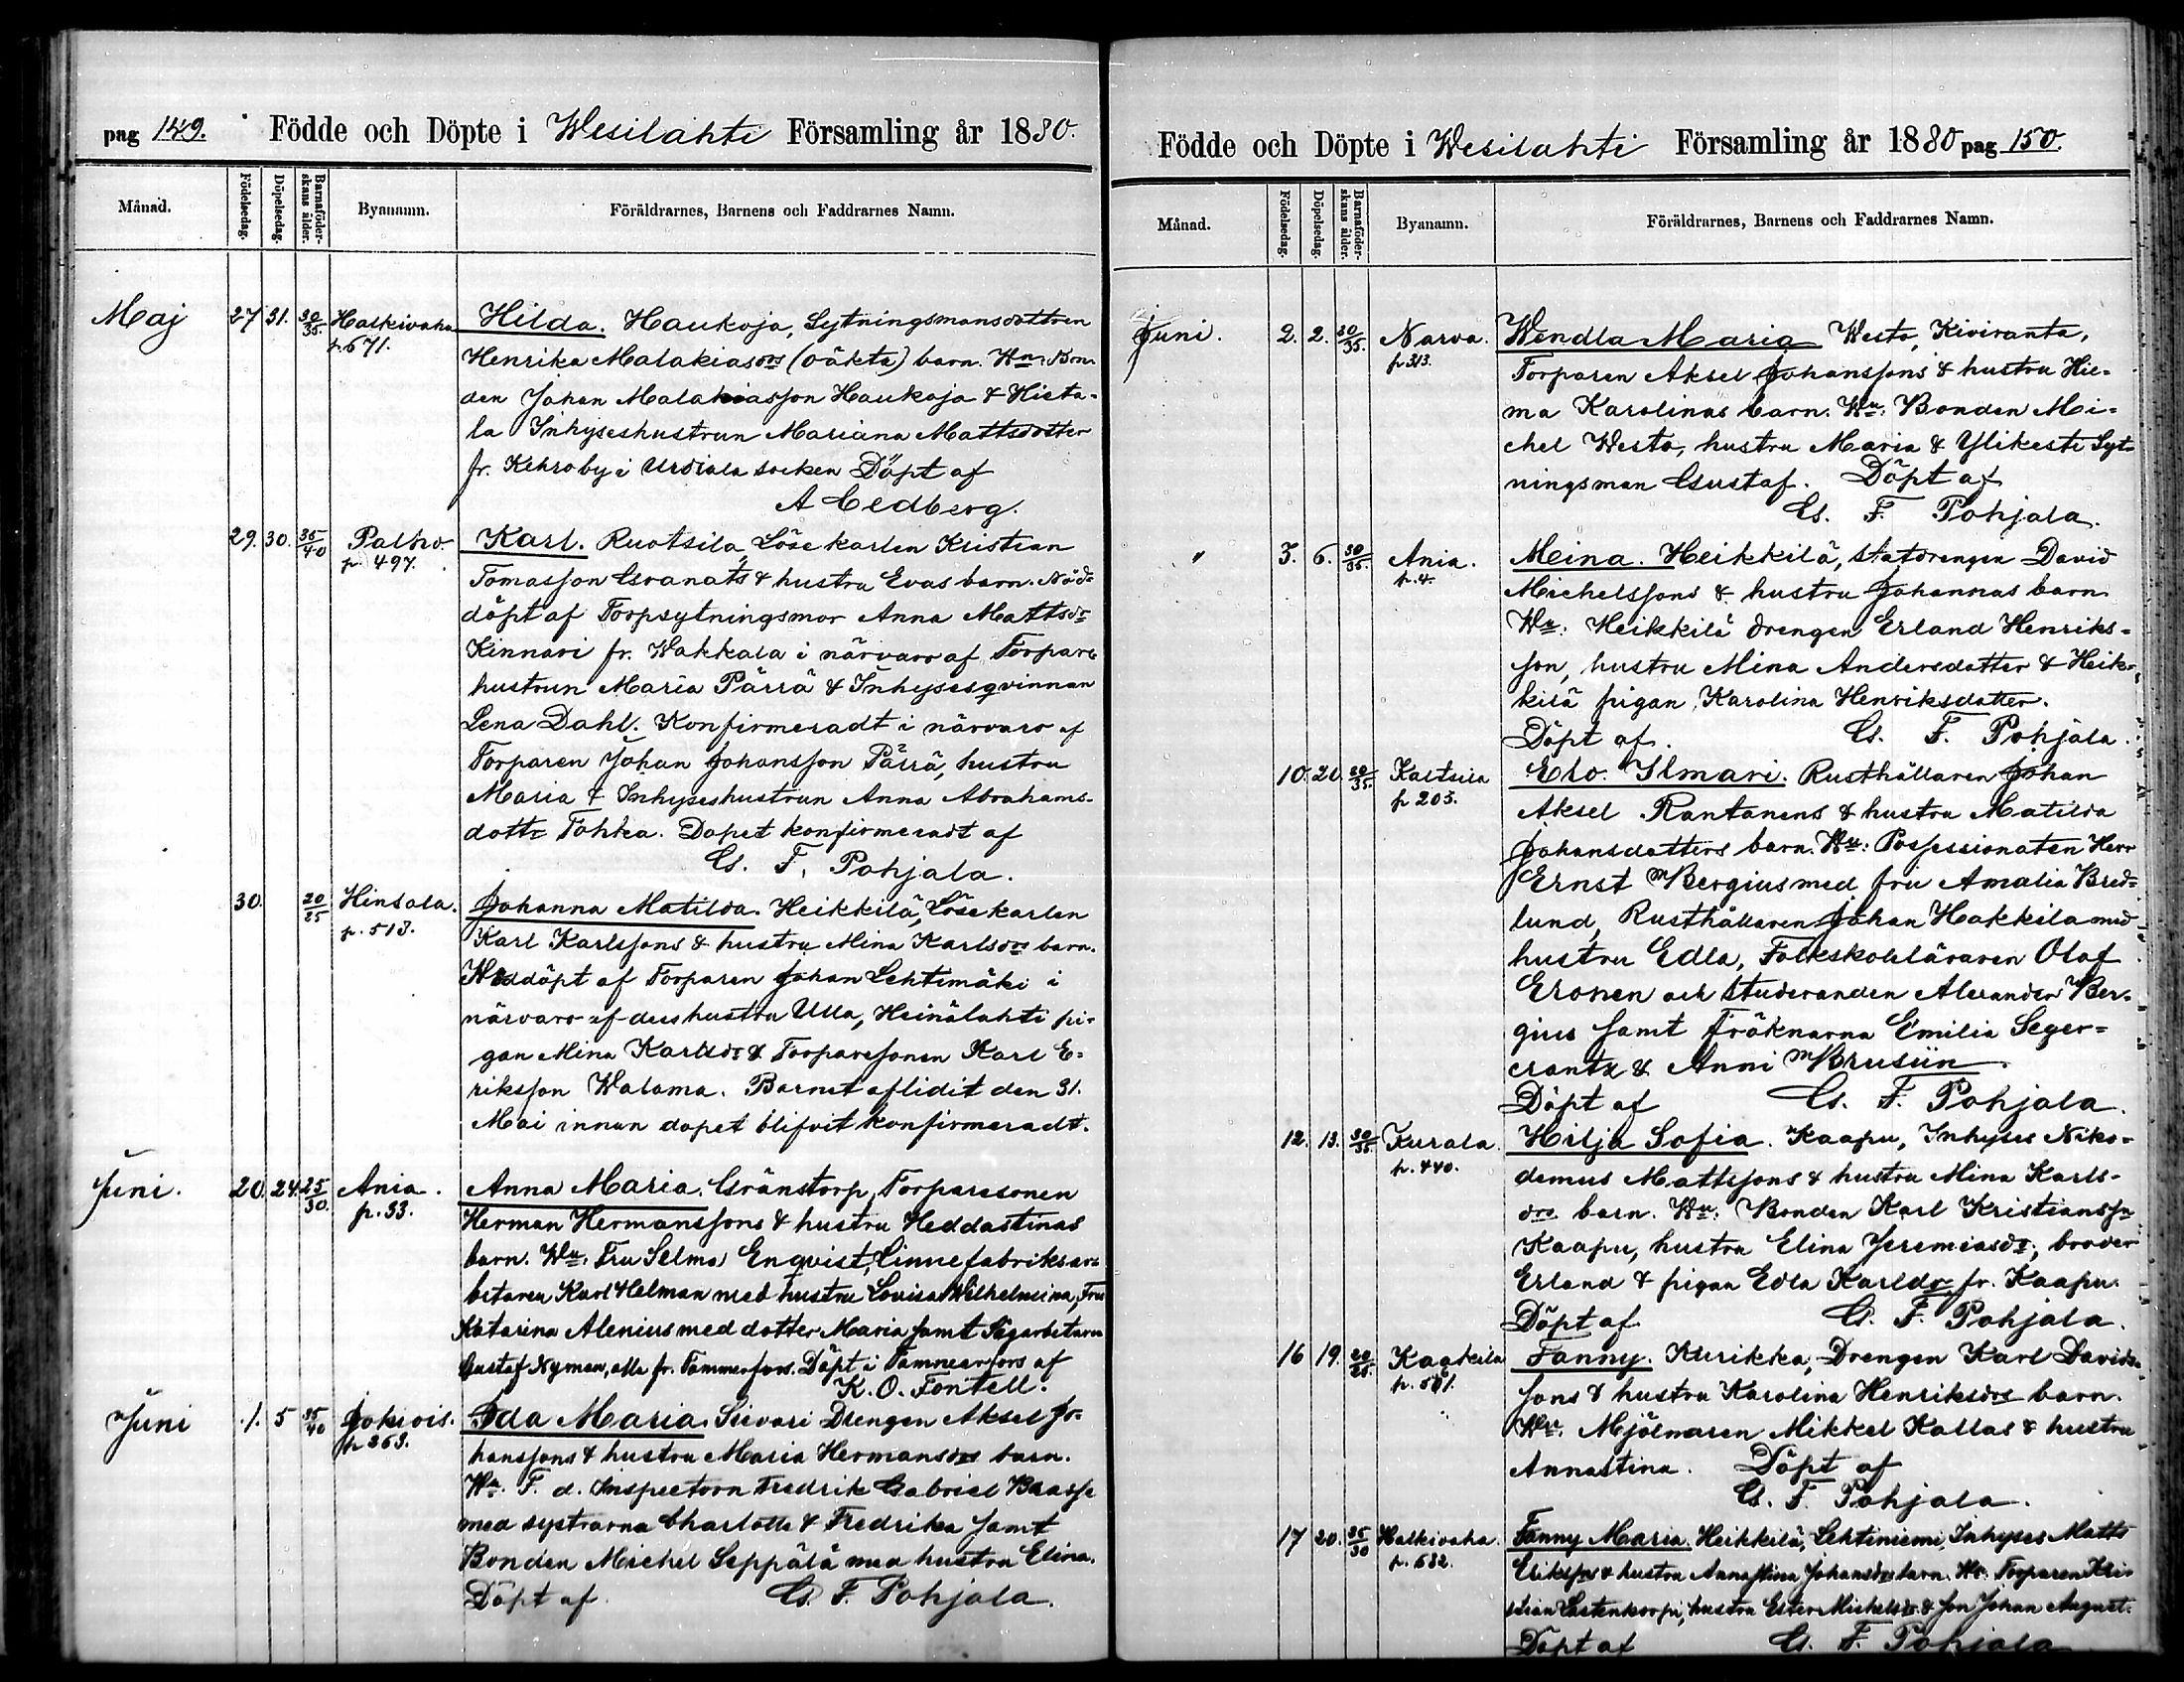 pag 149. Födde och Döpte i Wesilahti Församling år 1880.
Månad. Födelsedag. Döpelsedag. Barnaföderskans ålder. Byanamn. Föräldrarnes, Barnens och Faddrarnes Namn.
Maj 27 31. 30/35 Halkivaha Hilda. Haukoja, Sytningsmansdottren
p. 671. Henrika Malakiasdrs (oäkta) barn. Wn: Bon-
den Johan Malakiasson Haukoja & Hieta-
la Inhyseshustrun Mariana Mattsdotter
fr. Kehro by i Urdiala socken Döpt af
A Cedberg.
29. 30. 35/40 Palho Karl. Ruotsila, Lösekarlen Kristian
p. 497. Tomasson Granats & hustru Evas barn. Nöd-
döpt af Torpsytningsmor Anna Mattsdr
Kinnari fr. Wakkala i närvaro af Torpare
hustrun Maria Pärrä & Inhysesqvinnan
Lena Dahl. Konfirmeradt i närvaro af
Torparen Johan Johansson Pärrä, hustru
Maria & Inhyseshustrun Anna Abrahams-
dottr Tohka. Dopet konfirmeradt af
G. F. Pohjala.
30. 20/25 Hinsala. Johanna Matilda. Heikkilä, Lösekarlen
p. 513. Karl Karlssons & hustru Mina Karlsdrs barn.
Nöddöpt af Torparen Johan Lehtimäki i
närvaro af dess hustru Ulla, Heinälahti pi-
gan Mina Karlsdr & Torparesonen Karl E-
riksson Walama. Barnet aflidit den 31.
Mai innan dopet blifvit konfirmeradt.
Juni. 20. 24. 25/30. Ania. Anna Maria. Gränstorp, Torparesonen
p. 33. Herman Hermanssons & hustru Heddastinas
barn. Wn: Fru Selma Enqvist, Linnefabriksar-
betaren Karl Helman med hustru Lovisa Wilhelmina, Fru
Katarina Alenius med dotter Maria samt Sågarbetaren
Gustaf Nyman, alla fr. Tammerfors. Döpt i Tammerfors af
K. O. Fontell.
Juni 1. 5 35/40 Jokiois. Ida Maria. Siivari Drengen Aksel Jo-
p 363. hanssons & hustru Maria Hermansdrs barn.
Wn. F. d. Inspectorn Fredrik Gabriel Baasse
med systrarna Charlotta & Fredrika samt
Bonden Michel Seppälä med hustru Elina.
Döpt af G. F. Pohjala.
Födde och Döpte i Wesilahti Församling år 1880 pag 150.
Månad. Födelsedag. Döpelsedag. Barnaföderskans ålder. Byanamn. Föräldrarnes, Barnens och Faddrarnes Namn.
Juni. 2. 2. 30/35. Narva. Wendla Maria Westo, Kiviranta,
p 313. Torparen Aksel Johanssons & hustru Hil-
ma Karolinas barn. Wn: Bonden Mi-
chel Westo, hustru Maria & Ylikesti Syt-
ningsman Gustaf. Döpt af
G. F. Pohjala.
" 3. 6. 30/35. Ania. Meina. Heikkilä, Statdrengen David
p. 4. Michelssons & hustru Johannas barn.
Wn: Heikkilä drengen Erland Henriks-
son, hustru Mina Andersdotter & Heik-
kilä pigan Karolina Henriksdotter.
Döpt af. G. F. Pohjala.
10. 20. 30/35. Kaltsila Elo Ilmari. Rusthållaren Johan
p 205. Aksel Rantanens & hustru Matilda
Johansdotters barn. Wn: Possessionaten Herr
Ernst Bergius med fru Amalia Bred-
lund, Rusthållaren Johan Hakkila med
hustru Edla, Folkskoleläraren Olof
Eronen och Studeranden Alexander Ber-
gius samt Fröknarna Emilia Seger-
crantz & Anni Brusiin
Döpt af G. F. Pohjala.
12. 13. 30/35. Kurala. Hilja Sofia. Kaapu, Inhyses Niko-
p. 440. demus Mattssons & hustru Mina Karls-
drs barn. Wn: Bonden Karl Kristianssn
Kaapu, hustru Elina Jeremiasdr, broder
Erland & pigan Edla Karlsdr fr. Kaapu.
Döpt af G. F. Pohjala.
16 19. 20/25. Kaakila Fanny. Kurikka, Drengen Karl Davids-
sons & hustru Karolina Henriksdrs barn.
Wn. Mjölnaren Mikkel Kallas & hustru
Annastina. Döpt af
G. F. Pohjala.
17 20. 25/30 Halkivaha. Fanny Maria. Heikkilä, Lehtiniemi, Inhyses Matts
p. 682. Erikssons & hustru Annastina Johansdrs barn. Wn: Torparen Kri-
stian Lastenkorpi, hustru Ester Michelsdr & son Johan August.
Döpt af G. F. Pohjala